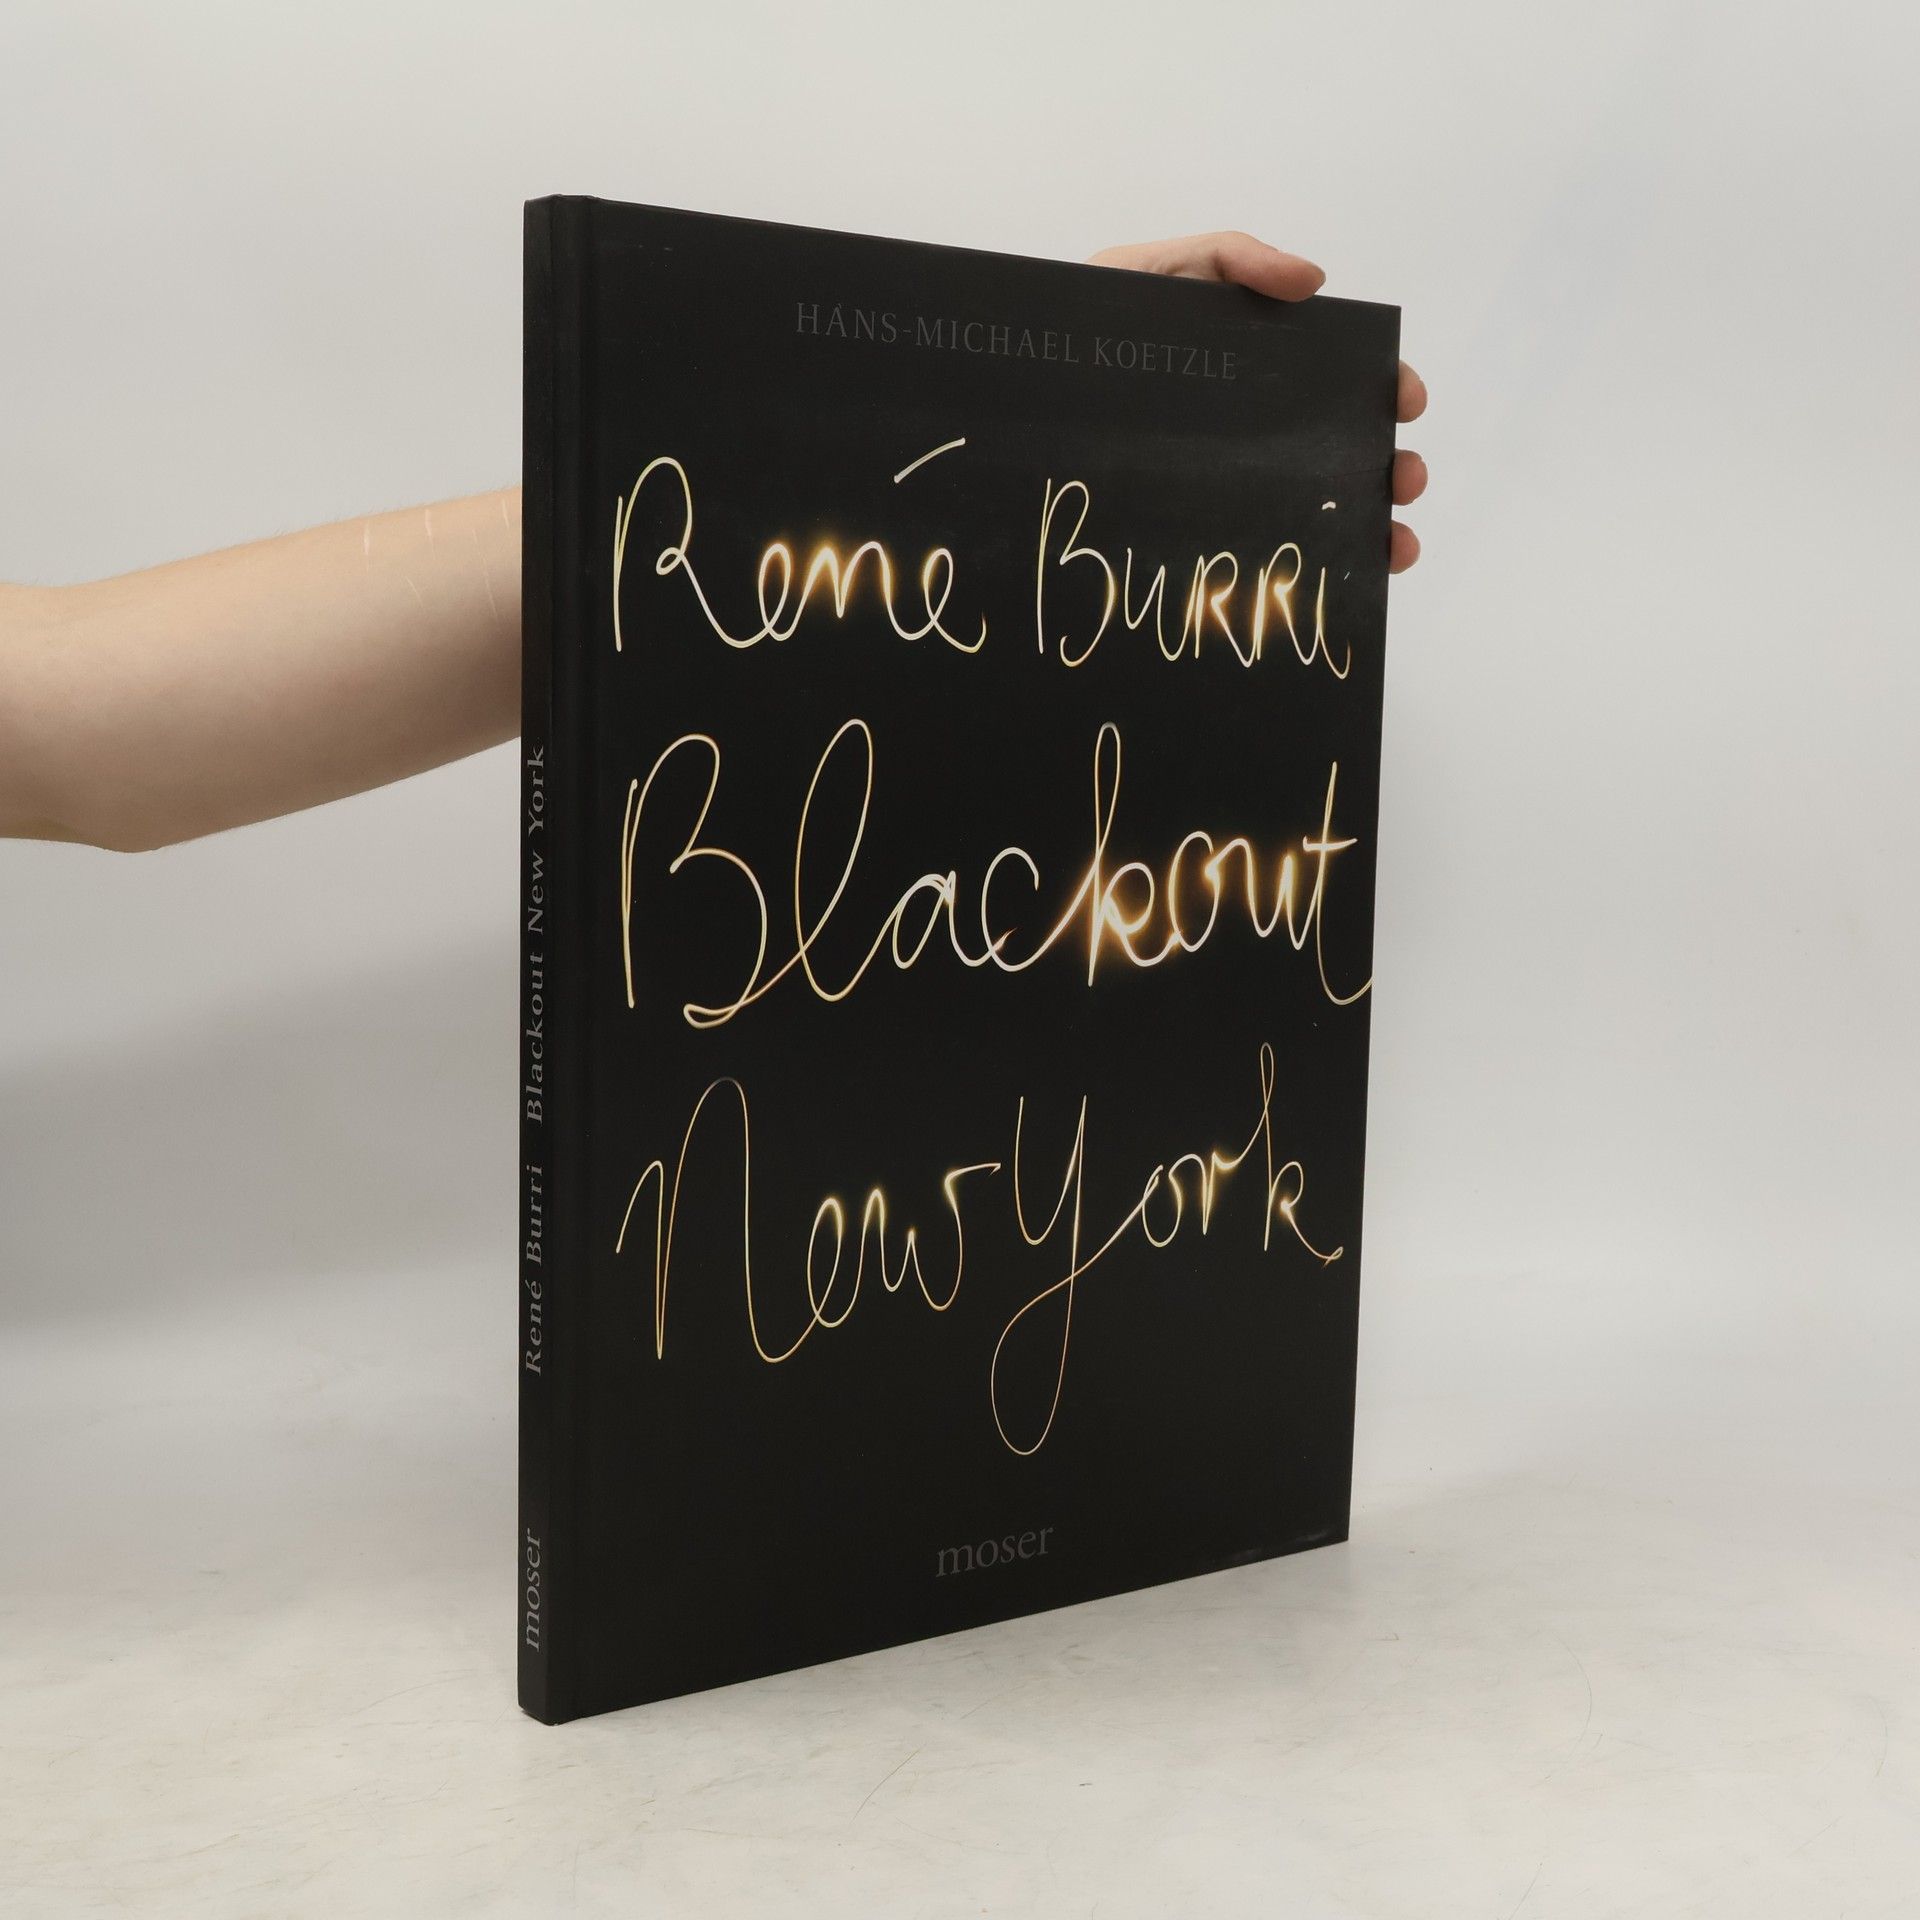 HANS-MICHAEL KOETZLE
René Burri
Blackout
New York
moser
René Burri Blackout New York
moser